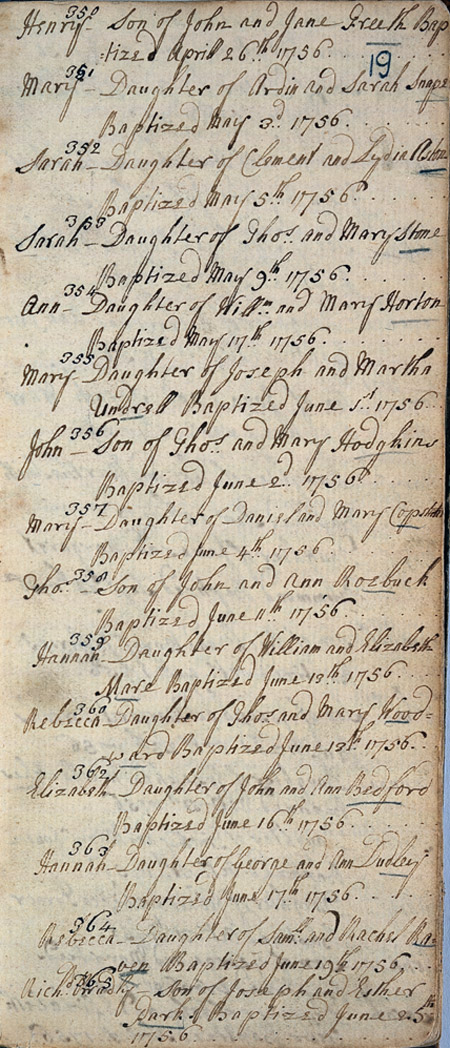 350
Henry - Son of John and Jane Greeth Bap
tized April 26th 1756
19
351
Mary - Daughter of Ardin and Sarah Snape
Baptized May 3d 1756
352
Sarah - Daughter of Clement and Lydia Aston
Baptized May 5th 1756
353
Sarah - Daughter of Thos. and Mary Stone
Baptized May 9th 1756
354
Ann - Daughter of Willm. and Mary Horton
Baptized May 17th 1756
355
Mary - Daughter of Joseph and Martha
Undrell Baptized June 1st 1756
356
John - Son of Thos. and Mary Hodgkins
Baptized June 2d 1756
357
Mary - Daughter of Daniel and Mary
Baptized June 4th 1756
358
Thos. - Son of John and Ann Roebuck
Baptized June 11th 1756
359
Hannah - Daughter of William and Elizabeth
Mare Baptized June 13th 1756
360
Rebecca - Daughter of Thos. and Mary Wood=
ward Baptized June 13th 1756
362
Elizabeth - Daughter of John and Ann Bedford
Baptized June 16th 1756
363
Hannah - Daughter of George and Ann Dudley
Baptized June 17th 1756
364
Rebecca - Daughter of Saml. and Rachel Ra=
ven Baptized June 19th 1756
365
Richd. - Son of Joseph and Esther
Baptized June 25th
1756